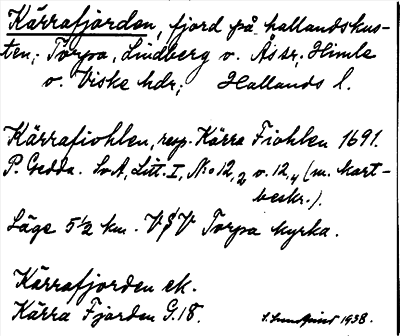 Kärrafjorden, fjord på hallandskus-
ten; Torpa, Lindberg o. Åssr, Himle
o. Viske hdr; Hallands l.
Kärrafiohlen, resp. Kärra Fiohlen 1691.
P. Gedda. SvA, Litt. I, No 12,2 o. 12,4 (m. kart-
beskr.).
Läge 5 1/2 km. V§V Torpa kyrka.
Kärrafjorden ek.
Kärra Fjorden G.18.
1938.